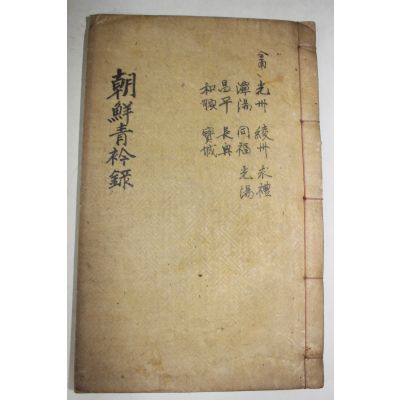 朝鮮青衿錄
光州 綾州 求禮
潭陽 同福 光陽
昌平 長興
和順 寶城